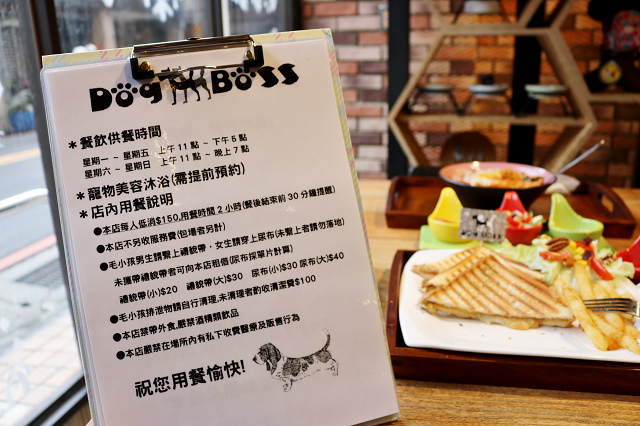 Dog Boss
＊餐飲供餐時間
星期一 ~ 星期五 上午11點 ~ 下午5點
星期六 ~ 星期日 上午11點 ~ 晚上7點
＊寵物美容沐浴(需提前預約)
＊店內用餐說明
●本店每人低消$150,用餐時間2小時(餐後結束前30分鐘提醒)
●本店不另收服務費(包場者另計)
●毛小孩男生請繫上禮貌帶，女生請穿上尿布(未繫上者請勿落地)
未攜帶禮貌帶者可向本店租借(尿布採單片計算)
禮貌帶(小)$20 禮貌帶(大)$30 尿布(小)$30 尿布(大)$40
●毛小孩排泄物請自行清理,未清理者酌收清潔費$100
●本店禁帶外食,嚴禁酒精類飲品
●本店嚴禁在場所內有私下收費醫療及販售行為
祝您用餐愉快!